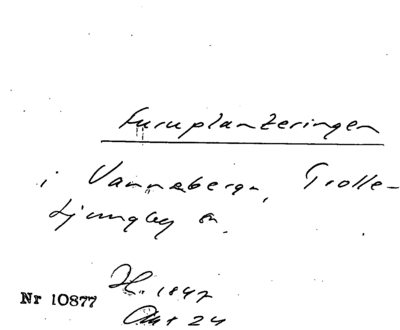 Furuplanteringen
i Vanneberga, Trolle-
Ljungby sn.
H. 1847
Nr 10877
Akt 24